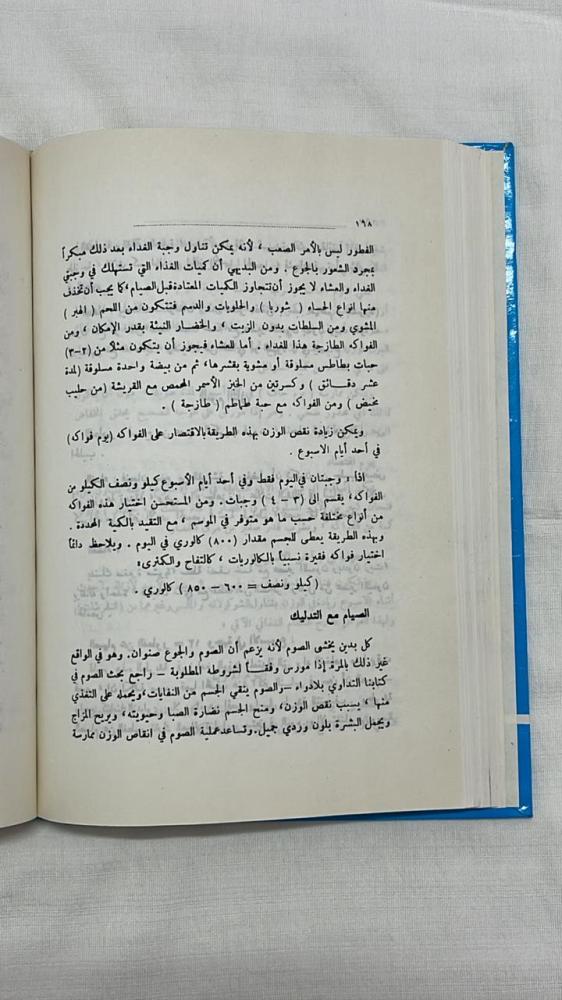 ١٩٨
الفطور ليس بالأمر الصعب ، لأنه يمكن تناول وجبة الغداء بعد ذلك مبكراً
بمجرد الشعور بالجوع . ومن البديهي أن كميات الغذاء التي تستهلك في وجبتي
الغداء والعشاء لا يجوز أن تتجاوز الكميات المعتادة قبل الصيام ، كما يجب أن تحذف
منها انواع الحساء ( شوربا ) والحلويات والدسم فتتكون من اللحم ( الهبر )
المشوي ومن السلطات بدون الزيت ، والخضار النيئة بقدر الإمكان ، ومن
الفواكه الطازجة هذا للغداء . أما للعشاء فيجوز أن يتكون مثلاً من (٢-٣)
حبات بطاطس مسلوقة أو مشوية بقشرها، ثم من بيضة واحدة مسلوقة (لمدة
عشر دقـائق ) وكسرتين من الخبز الأسمر المحمص مع القريشة (من حليب
مخيض ) ومن الفواكه مع حبة طماطم ( طازجة ) .
ويمكن زيادة نقص الوزن بهذه الطريقة بالاقتصار على الفواكه (يوم فواكه)
في أحد أيام الاسبوع .
اذاً : وجبتان في اليوم فقط وفي أحد أيام الأسبوع كيلو ونصف الكيلو من
الفواكه، يقسم الى (٣ – ٤ ) وجبات . ومن المستحسن اختيار هذه الفواكه
من أنواع مختلفة حسب ما هو متوفر في الموسم ، مع التقيد بالكمية المحددة .
وبهذه الطريقة يعطى للجسم مقدار (٨٠٠) كالوري في اليوم . ويلاحظ دائماً
اختيار فواكه فقيرة نسبياً بالكالوريات ، كالتفاح والكمثرى:
(كيلو ونصف = ٦٠٠ – ٨٥٠ ) كالوري .
الصيام مع التدليك
كل بدين يخشى الصوم لأنه يزعم أن الصوم والجوع صنوان. وهو في الواقع
غير ذلك بالمرة إذا مورس وفقـــاً لشروطه المطلوبة – راجع بحث الصوم في
كتابنا التداوي بلادواء –والصوم ينقي الجسم من النفايات،ويحمله على التغذي
منها ، بسبب نقص الوزن، ومنح الجسم نضارة الصبا وحيويته، ويريح المزاج
ويجمل البشرة بلون وردي جميل.وتساعد عملية الصوم في انقاص الوزن بممارسة